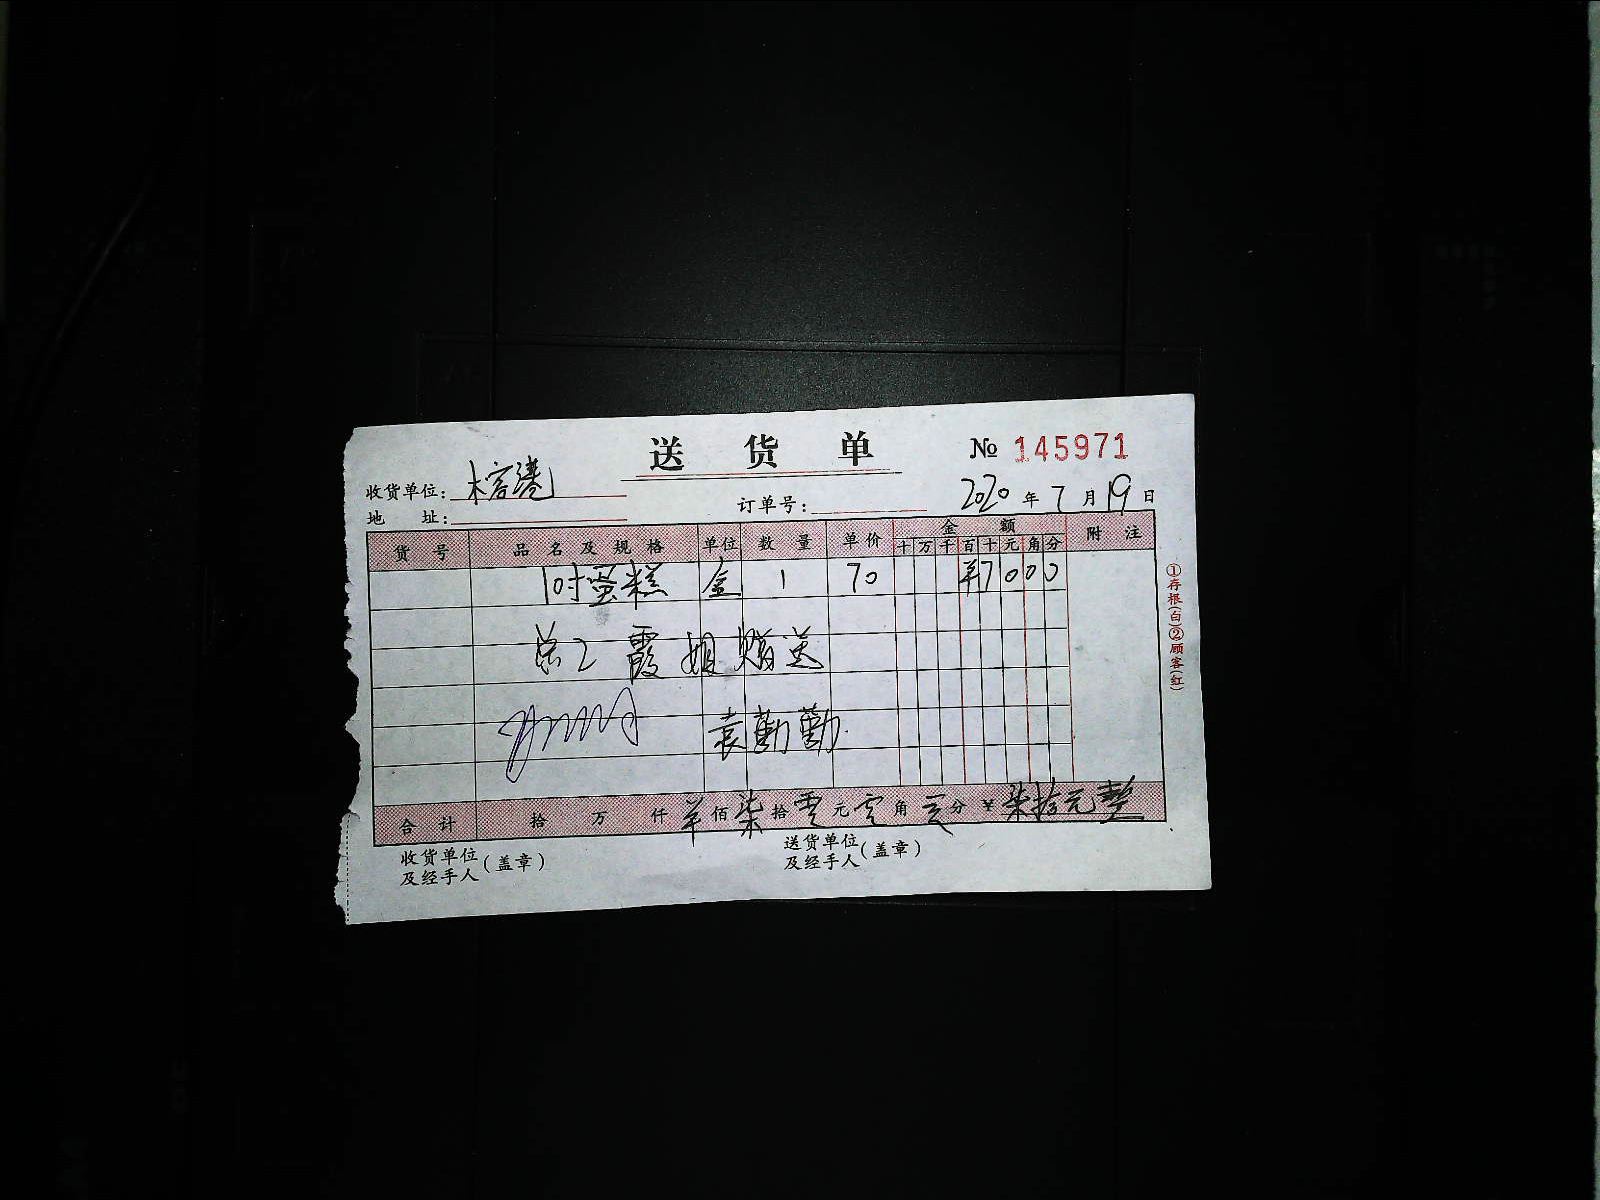 送货单 № 145971
收货单位：榕港
订单号： 2020年7月19日
地址：
货号 品名及规格 单位 数量 单价 金额 附注
十万千百十元角分
10寸蛋糕 盒 1 70 ¥7000
总2霞姐赠送
袁勤勤
合计 拾 万 仟 羊佰柒拾零元零角零分 ¥ 柒拾元整
收货单位及经手人（盖章）
送货单位及经手人（盖章）
①存根（白）②顾客（红）